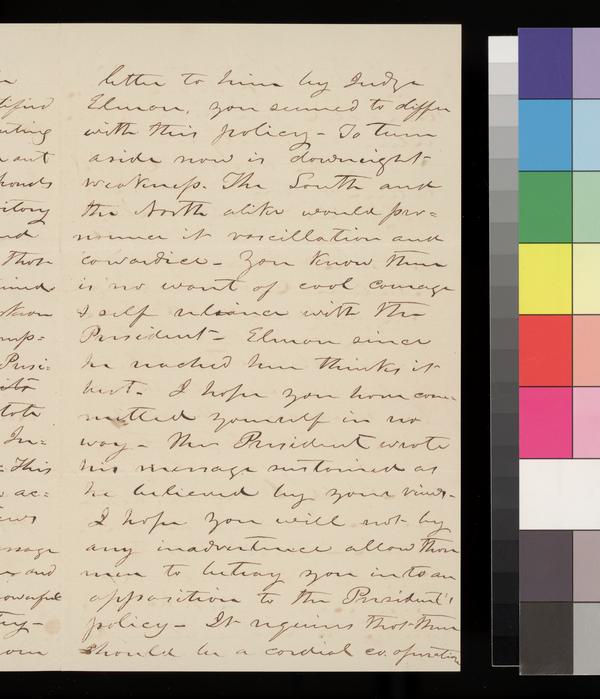 letter to him by Judge
Elmore, you seemed to differ
with this policy - To turn
aside now is downright
weakness. The South and
the North alike would pro=
nounce it vascillation and
cowardice - You know there
is no want of cool courage
& self reliance with the
President - Elmore since
he reached here thinks it
best - I hope you have com=
mitted yourself in no
way - The President wrote
his message sustained as
he believed by your views -
I hope you will not by
any inadvertence allow those
men to betray you into an
opposition to the President's
policy - It requires that there
should be a cordial co.operation
tified
out
itory
those
Presi=
its
In=
: This
ac=
ews
essage
and
powerful